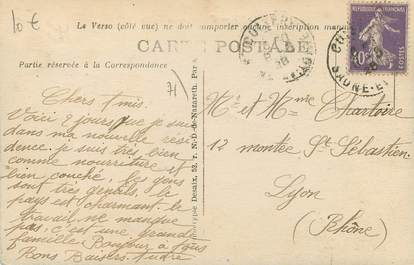 10 €
Le Verso (côté vue) ne doit comporter aucune inscription manu
CARTE POSTALE
Partie réservée à la Correspondance
RÉPUBLIQUE FRANÇAISE
40c
SAONE-E
71)
Chers Amis.
Voici 2 jours que je suis
dans ma nouvelle rési
dence. je suis très bien
comme nourriture et
bien couché, les gens
sont très gentils, le
pays est charmant. le
travail ne manque
pas, c'est une grande
famille Bonjour à tous
Bons Baisers. André
Desaix, 53, r. N.-D-de-Nazareth, Paris
Mr et Mme Chartoire
12 montée St Sébastien
Lyon
(Rhône)